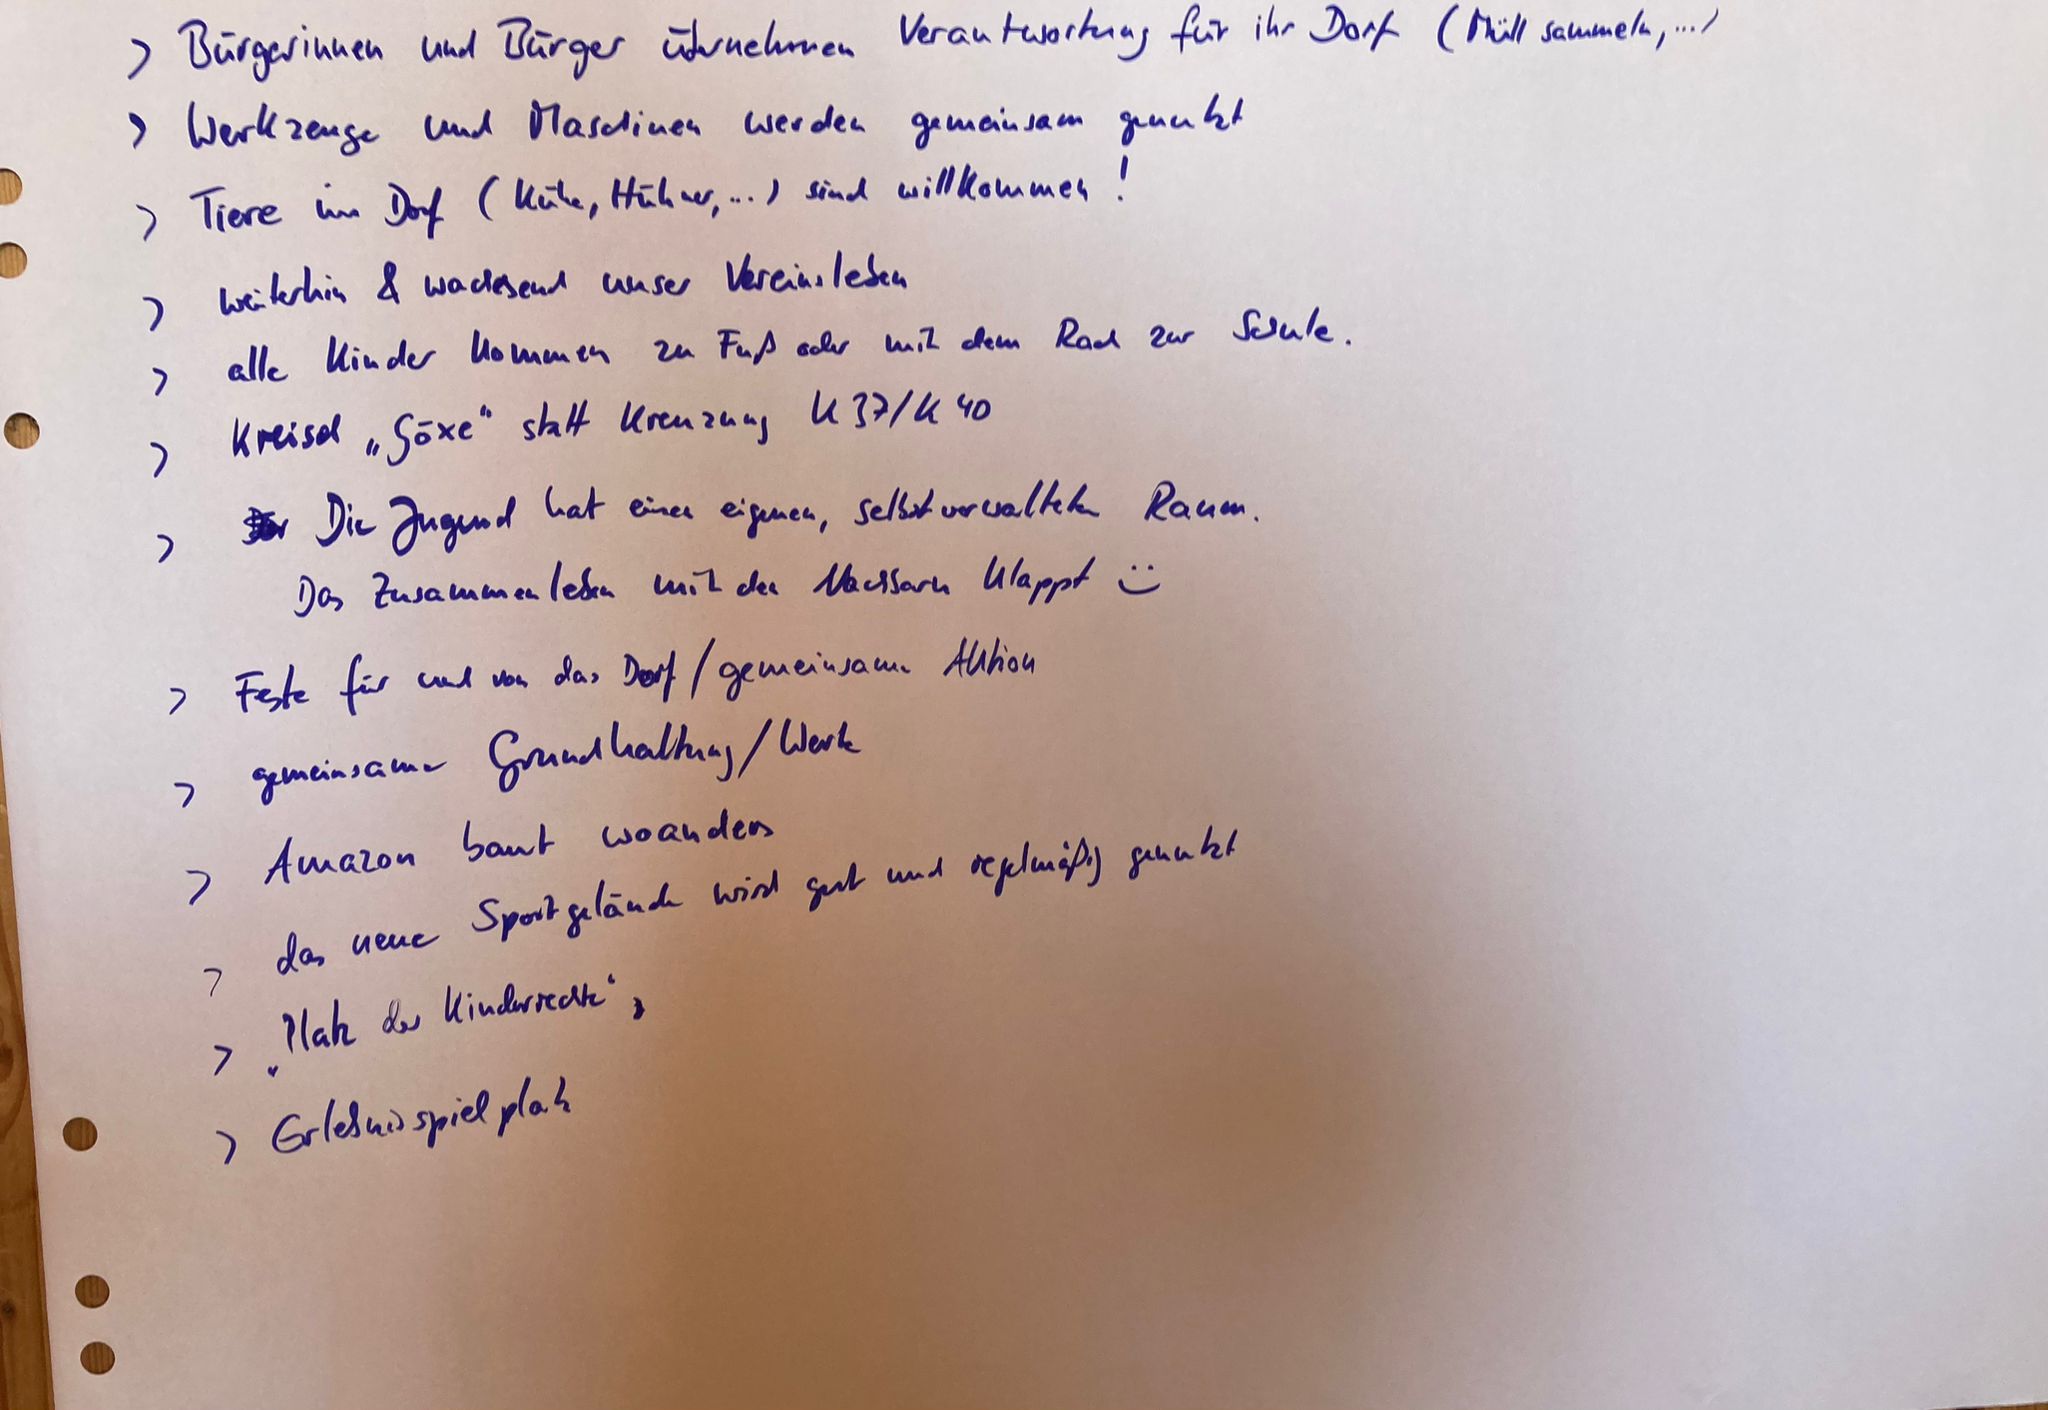 > Bürgerinnen und Bürger übernehmen Verantwortung für ihr Dorf (Müll sammeln, ...)
> Werkzeuge und Maschinen werden gemeinsam genutzt
> Tiere im Dorf (Kühe, Hühner, ...) sind willkommen!
> weiterhin & wachsend unser Vereinsleben
> alle Kinder kommen zu Fuß oder mit dem Rad zur Schule.
> Kreisel „Göxe“ statt Kreuzung K37/K40
> Die Jugend hat einen eigenen, selbstverwalteten Raum.
Das Zusammenleben mit den Nachbarn klappt :)
> Feste für und von das Dorf / gemeinsame Aktion
> gemeinsame Grundhaltung / Werte
> Amazon baut woanders
> das neue Sportgelände wird gut und regelmäßig genutzt
> „Platz der Kinderrechte“,
> Erlebnisspielplatz